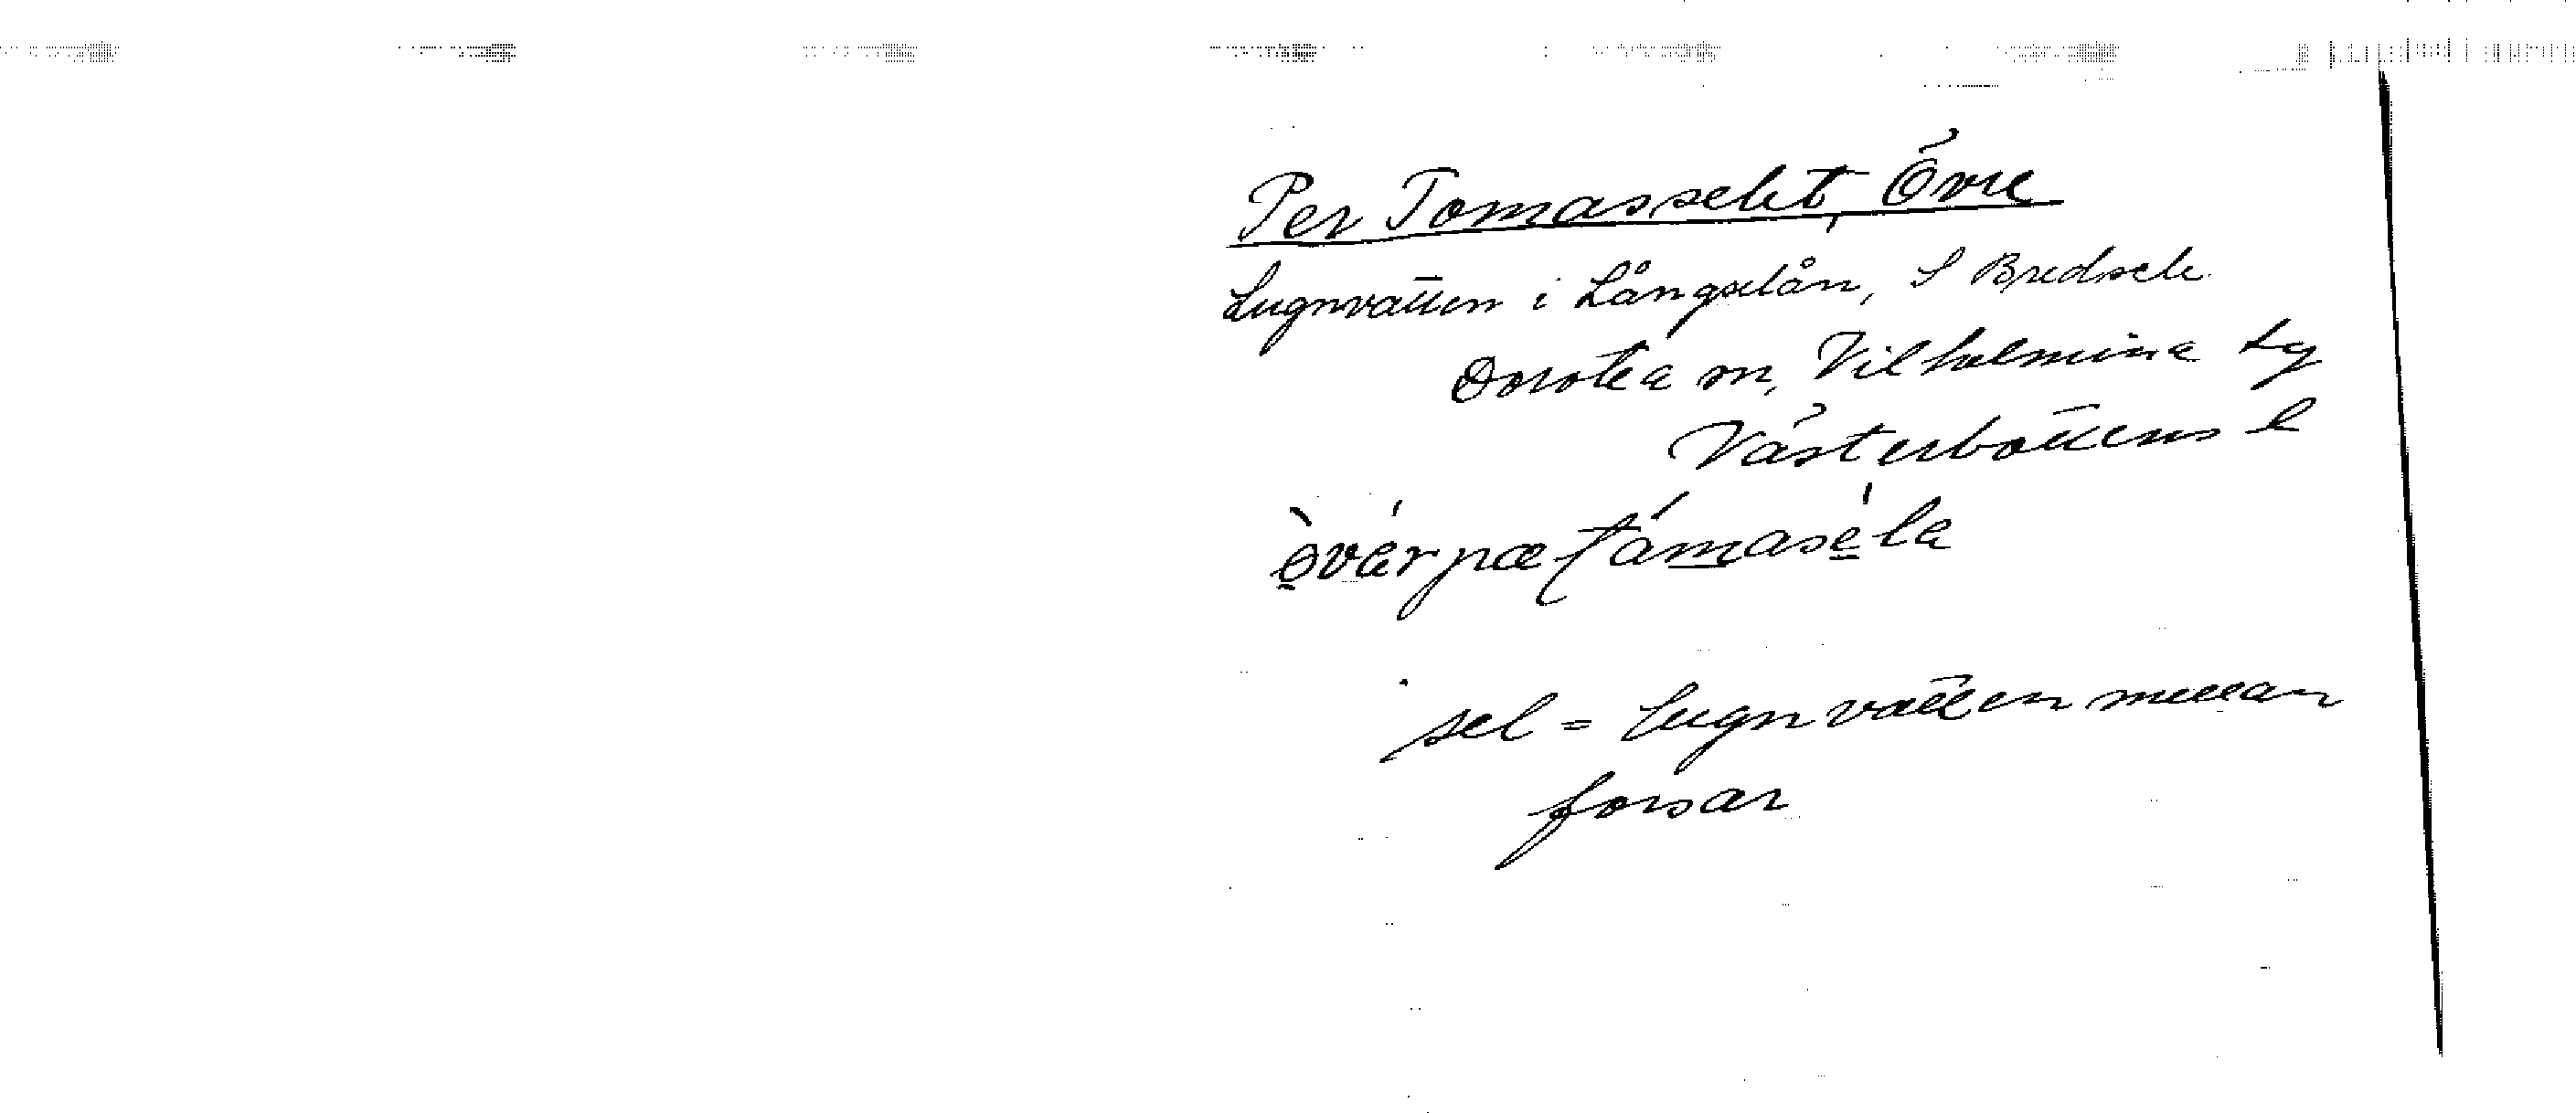 Per Tomasselet, Övre
Lugnvatten i Långselån, S Bredsele
Dorotea sn, Vilhelmina tg
Västerbottens l
sel = Lugnvatten mellan
forsar